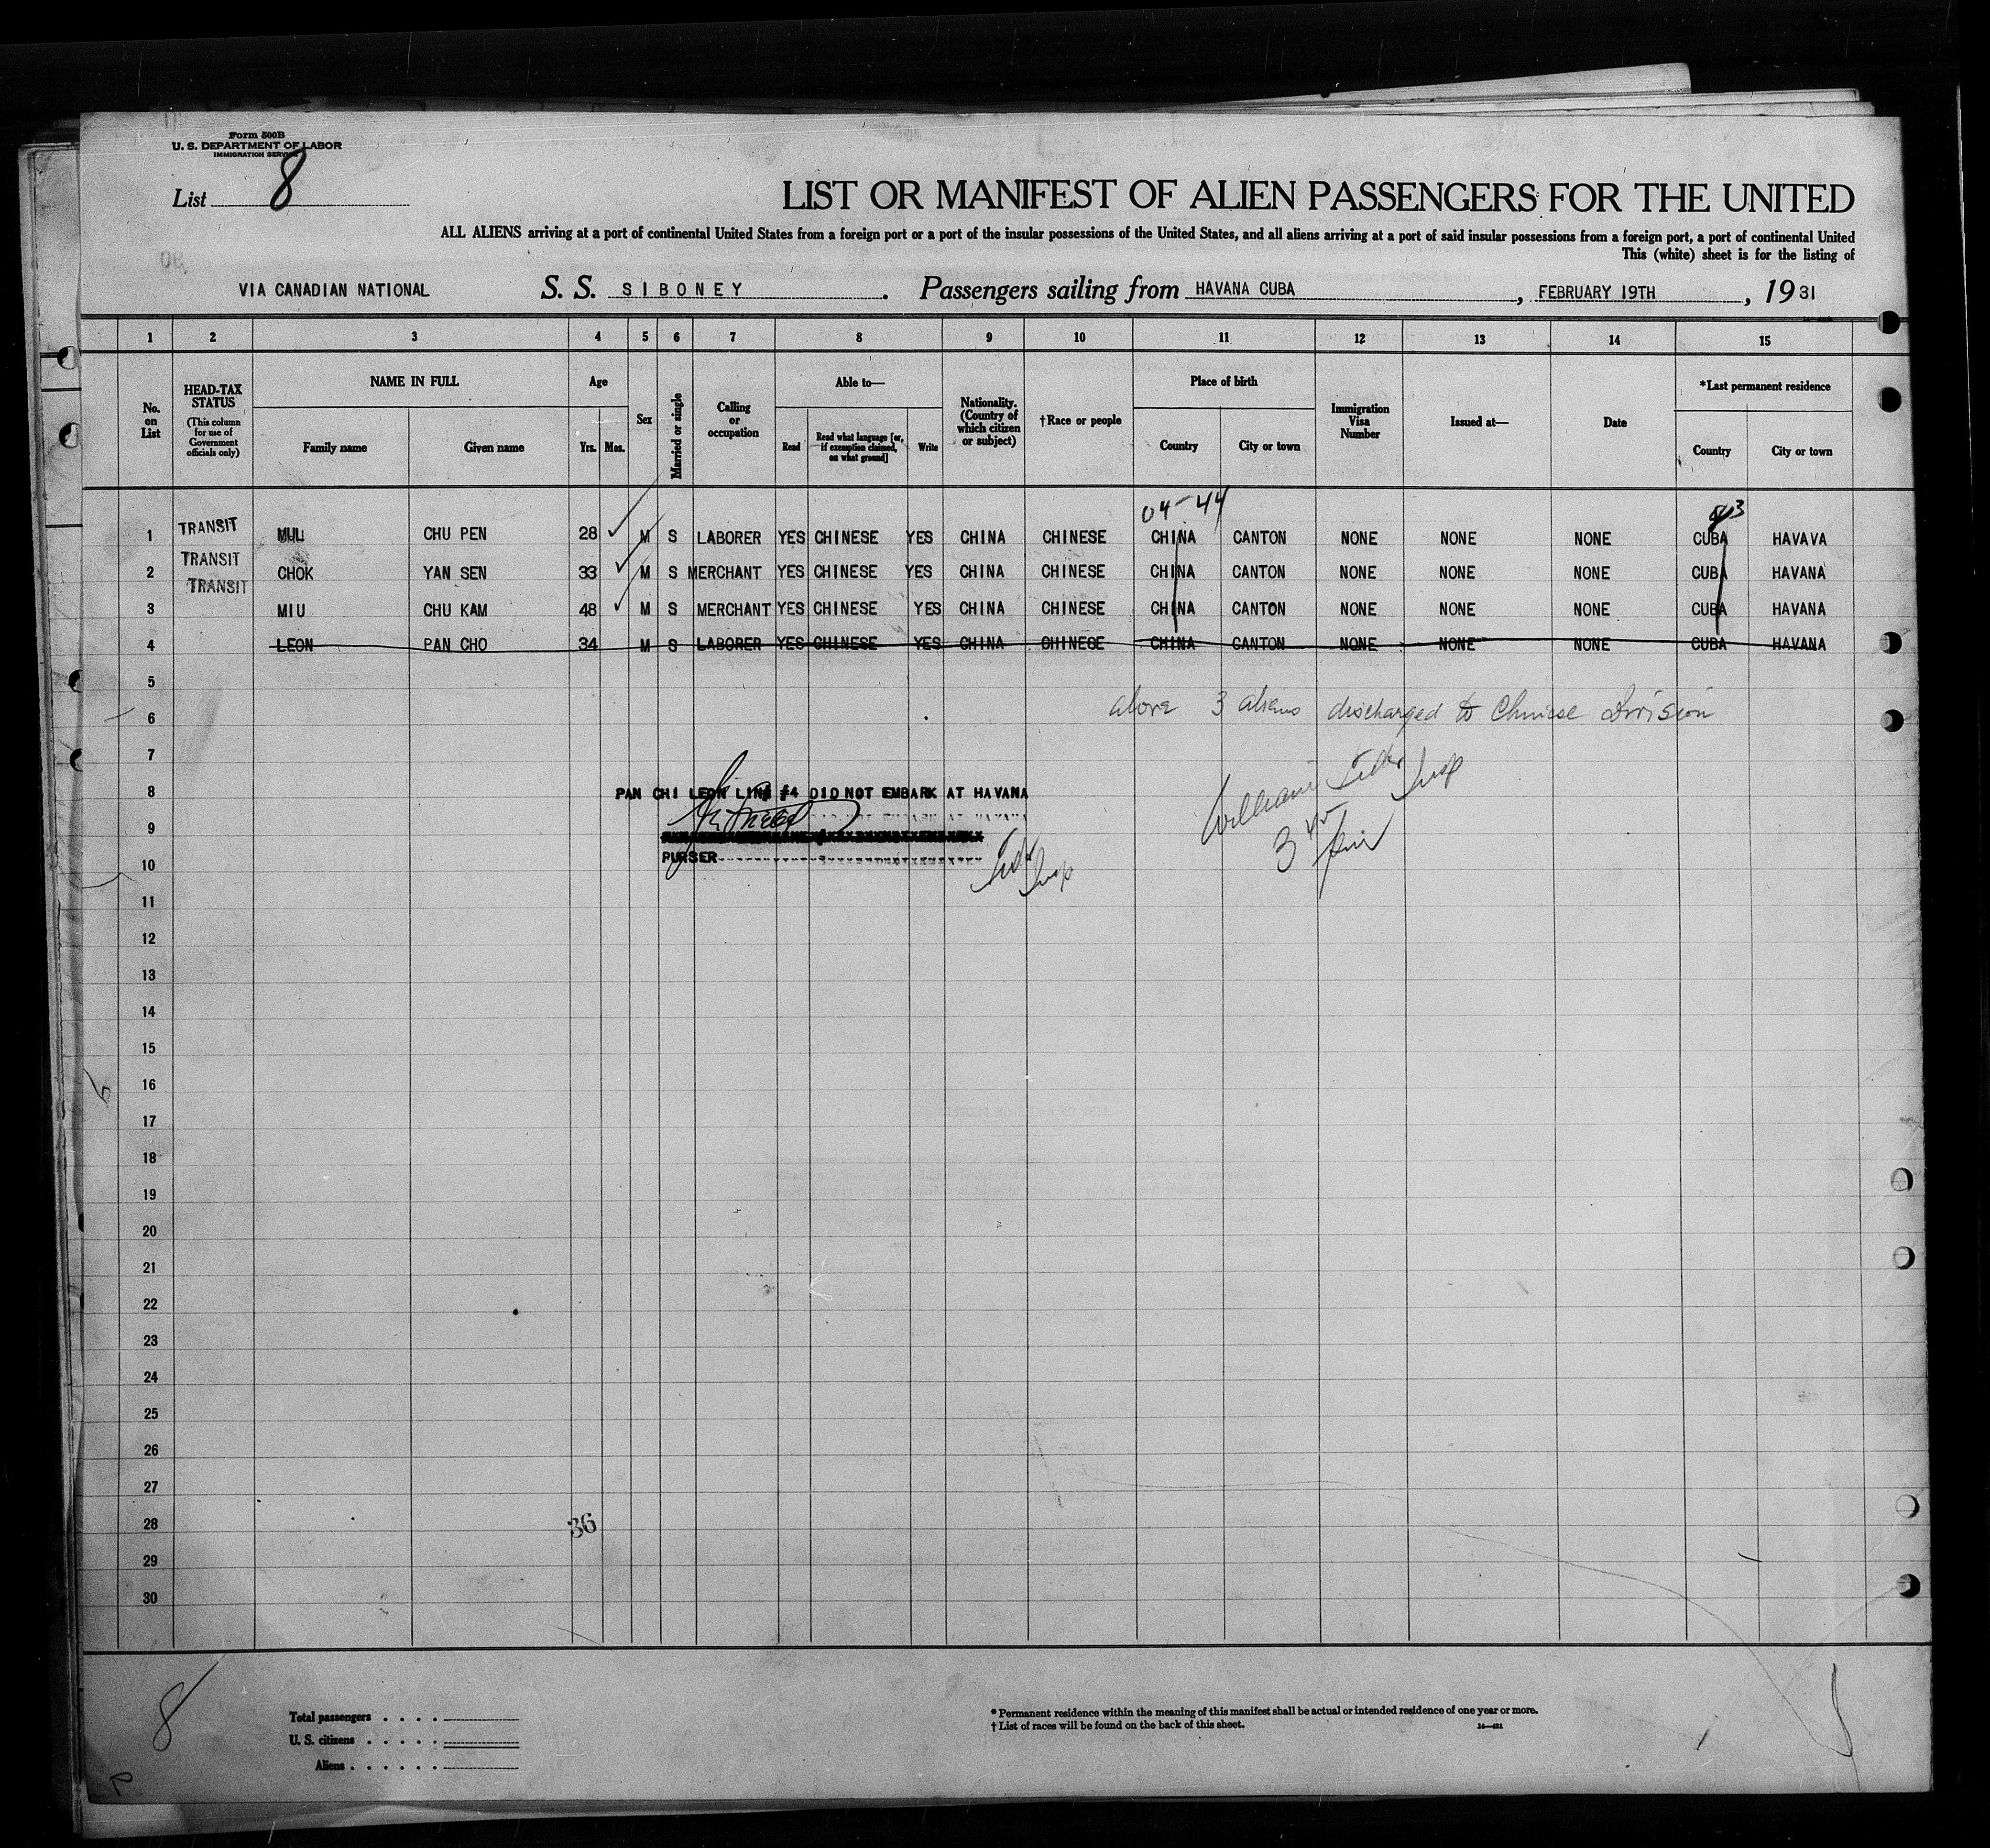 Form 500B
U. S. DEPARTMENT OF LABOR
IMMIGRATION SERVICE
List 8
LIST OR MANIFEST OF ALIEN PASSENGERS FOR THE UNITED
ALL ALIENS arriving at a port of continental United States from a foreign port or a port of the insular possessions of the United States, and all aliens arriving at a port of said insular possessions from a foreign port, a port of continental United
This (white) sheet is for the listing of
VIA CANADIAN NATIONAL S. S. SIBONEY. Passengers sailing from HAVANA CUBA, FEBRUARY 19TH, 1931
1 2 3 4 5 6 7 8 9 10 11 12 13 14 15
No. on List
HEAD-TAX STATUS (This column for use of Government officials only)
NAME IN FULL
Family name Given name
Age
Yrs. Mos.
Sex
Married or single
Calling or occupation
Able to—
Read Read what language [or, if exemption claimed, on what ground] Write
Nationality. (Country of which citizen or subject)
†Race or people
Place of birth
Country City or town
Immigration Visa Number
Issued at—
Date
*Last permanent residence
Country City or town
04-44
1 TRANSIT CHU PEN 28 M S LABORER YES CHINESE YES CHINA CHINESE CHINA CANTON NONE NONE NONE CUBA HAVAVA
2 TRANSIT CHOK YAN SEN 33 M S MERCHANT YES CHINESE YES CHINA CHINESE CHINA CANTON NONE NONE NONE CUBA HAVANA
3 TRANSIT MIU CHU KAM 48 M S MERCHANT YES CHINESE YES CHINA CHINESE CHINA CANTON NONE NONE NONE CUBA HAVANA
4 LEON PAN CHO 34 M S LABORER YES CHINESE YES CHINA CHINESE CHINA CANTON NONE NONE NONE CUBA HAVANA
5
6 above 3 aliens discharged to Chinese Division
7
8 PAN CHI LEON LINE #4 DID NOT EMBARK AT HAVANA
9
10 PURSER
11
12
13
14
15
16
17
18
19
20
21
22
23
24
25
26
27
28
36
29
30
8
Total passengers
U. S. citizens
Aliens
* Permanent residence within the meaning of this manifest shall be actual or intended residence of one year or more.
† List of races will be found on the back of this sheet.